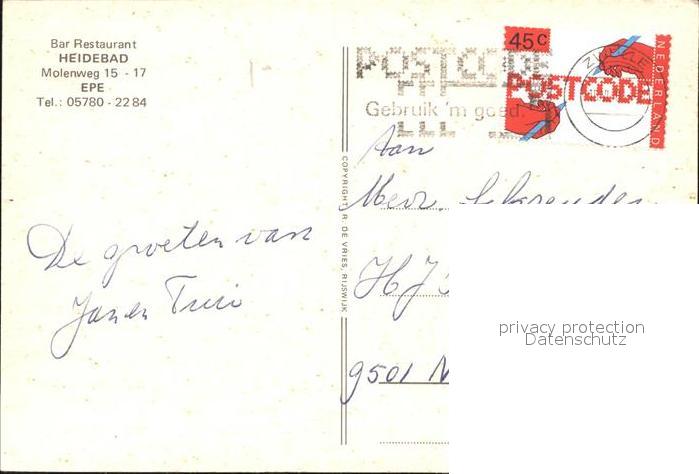 Bar Restaurant
HEIDEBAD
Molenweg 15 - 17
EPE
Tel.: 05780 - 2284
45c
NEDERLAND
POSTCODE
POSTCODE
Gebruik 'm goed.
ZWOLLE
COPYRIGHT R. DE VRIES, RIJSWIJK
Aan
Mevr.
H J
9501
De groeten van
Jan en
privacy protection
Datenschutz